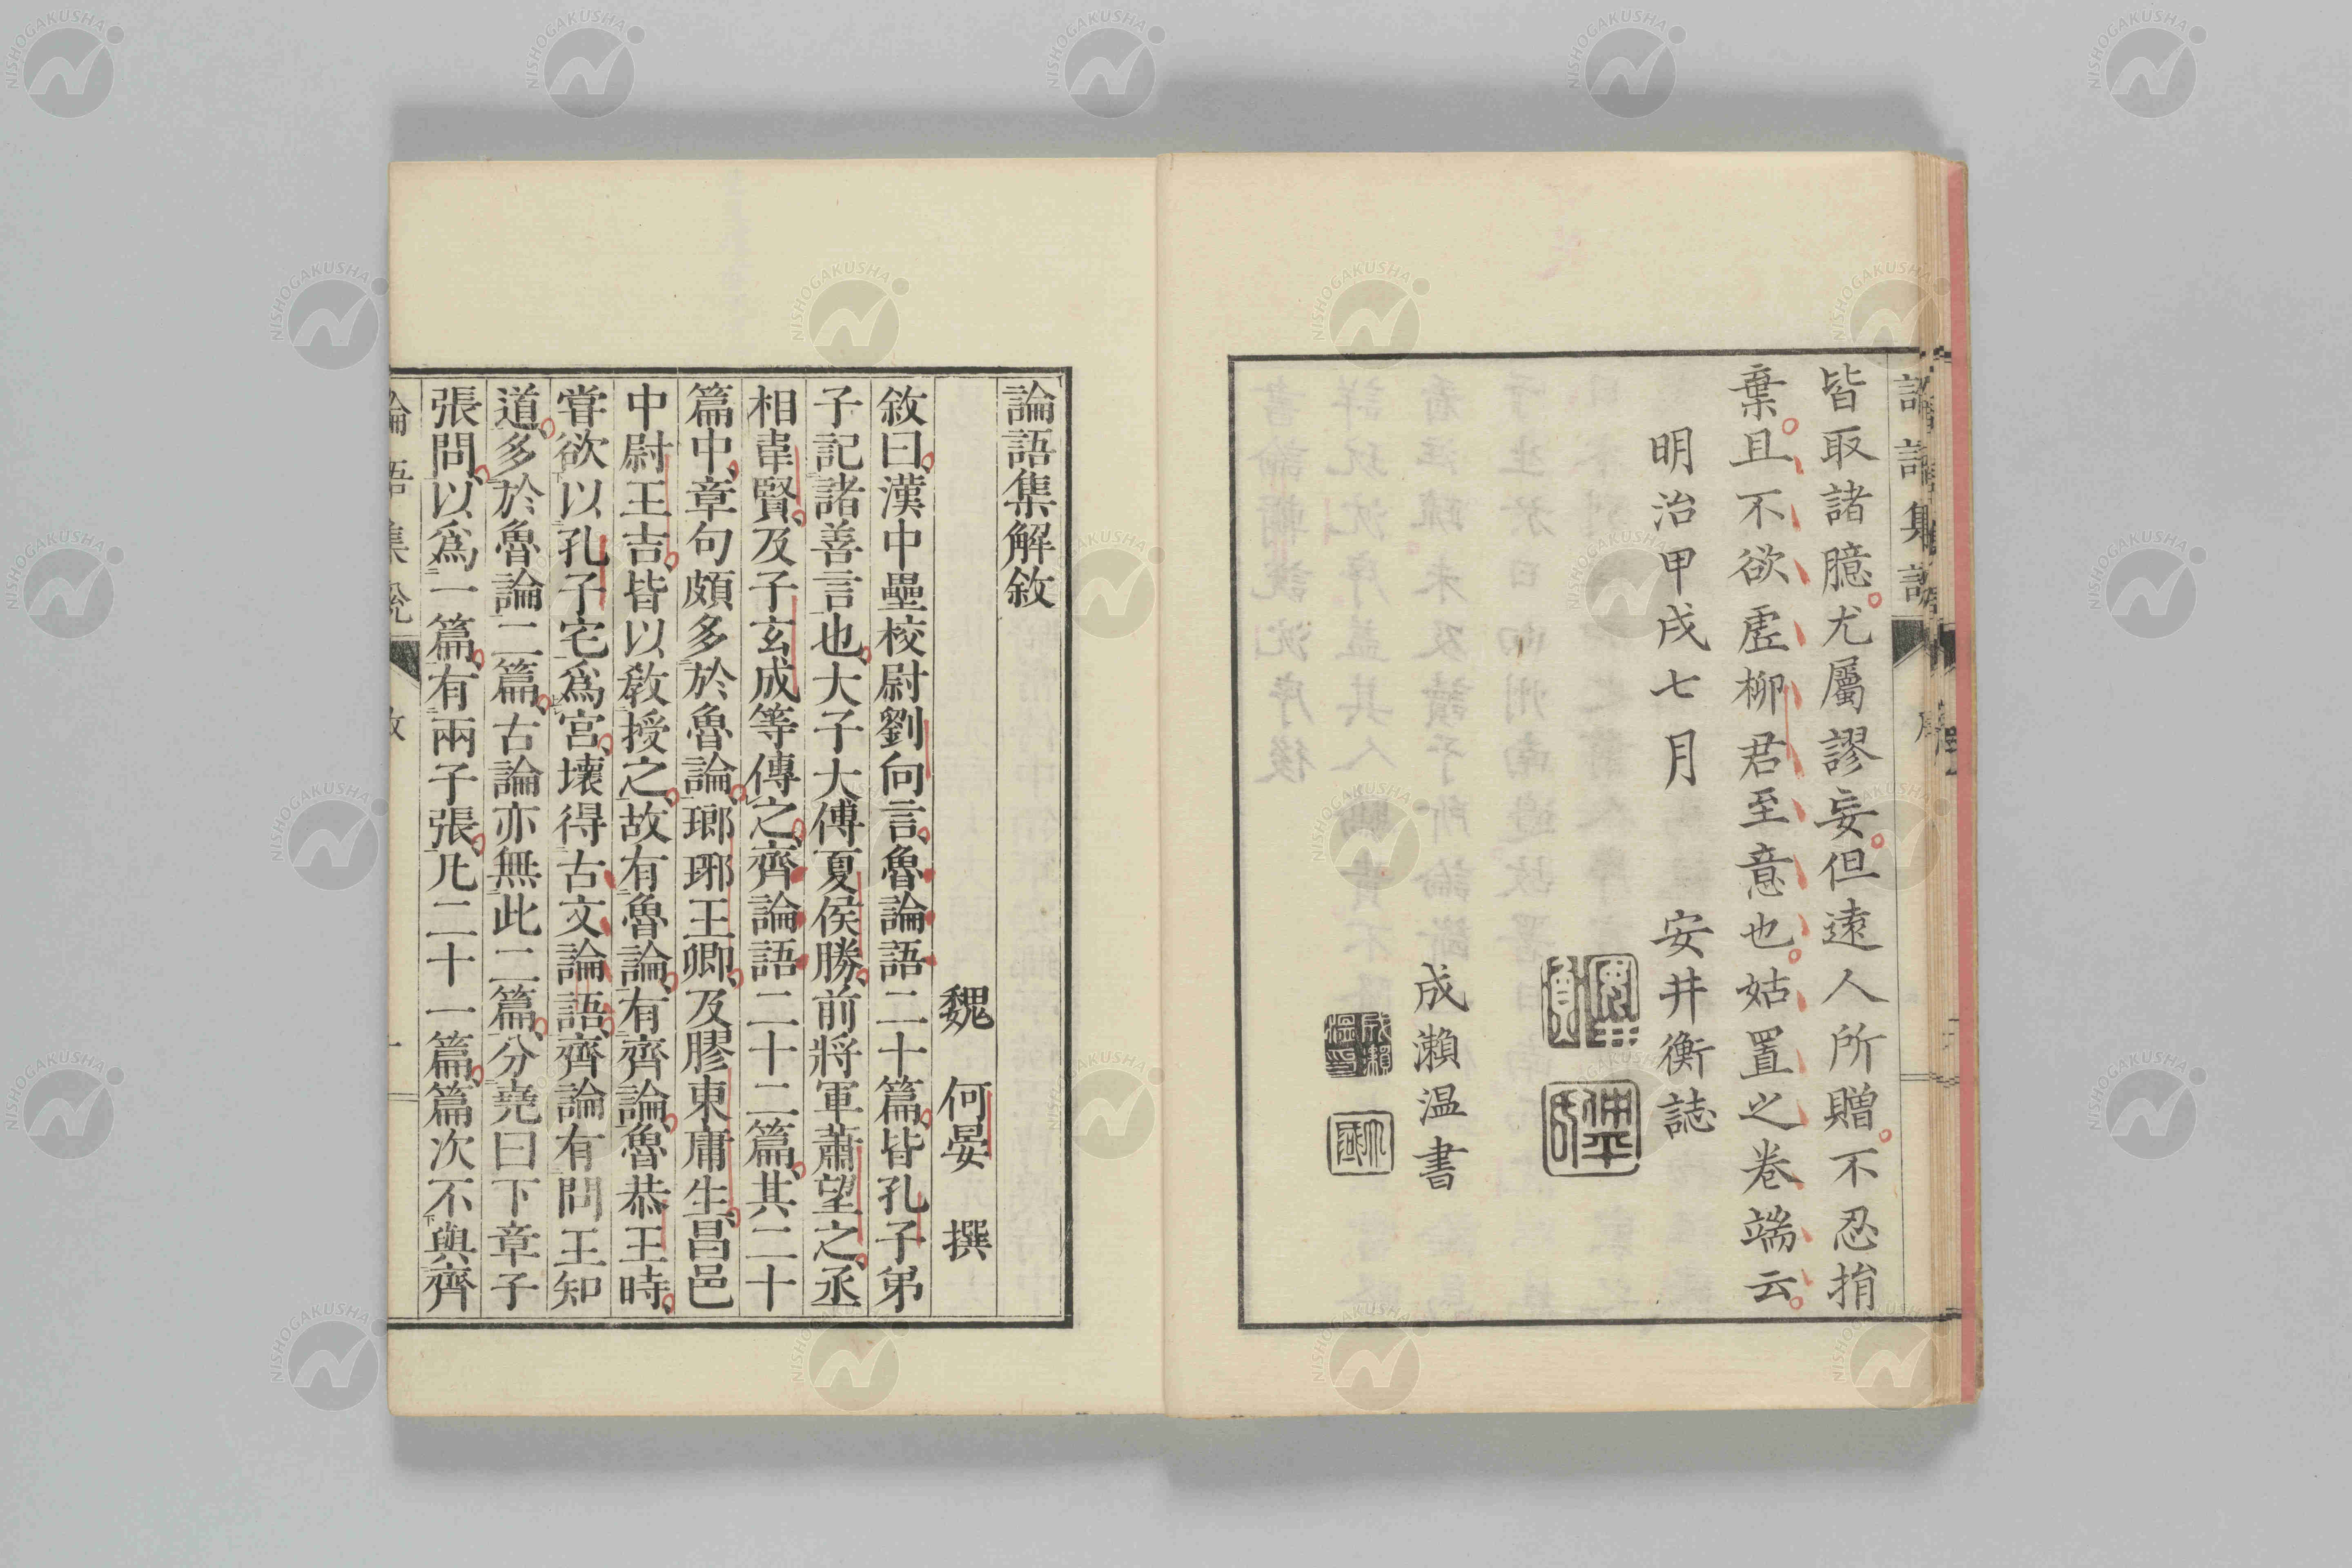 皆取諸臆尤屬謬妄但遠人所贈不忍捐
棄且不欲虛柳君至意也姑置之卷端云
明治甲戌七月　安井衡誌
成瀨温書
論語集解敘
魏　何晏　撰
敘曰漢中壘校尉劉向言魯論語二十篇皆孔子弟
子記諸善言也大子大傅夏侯勝前將軍蕭望之丞
相韋賢及子玄成等傳之齊論語二十二篇其二十
篇中章句頗多於魯論琅琊王卿及膠東庸生昌邑
中尉王吉皆以敎授之故有魯論有齊論魯恭王時
嘗欲以孔子宅爲宮壞得古文論語齊論有問王知
道多於魯論二篇古論亦無此二篇分堯曰下章子
張問以爲一篇有兩子張凡二十一篇篇次不與齊
NISHOGAKUSHA